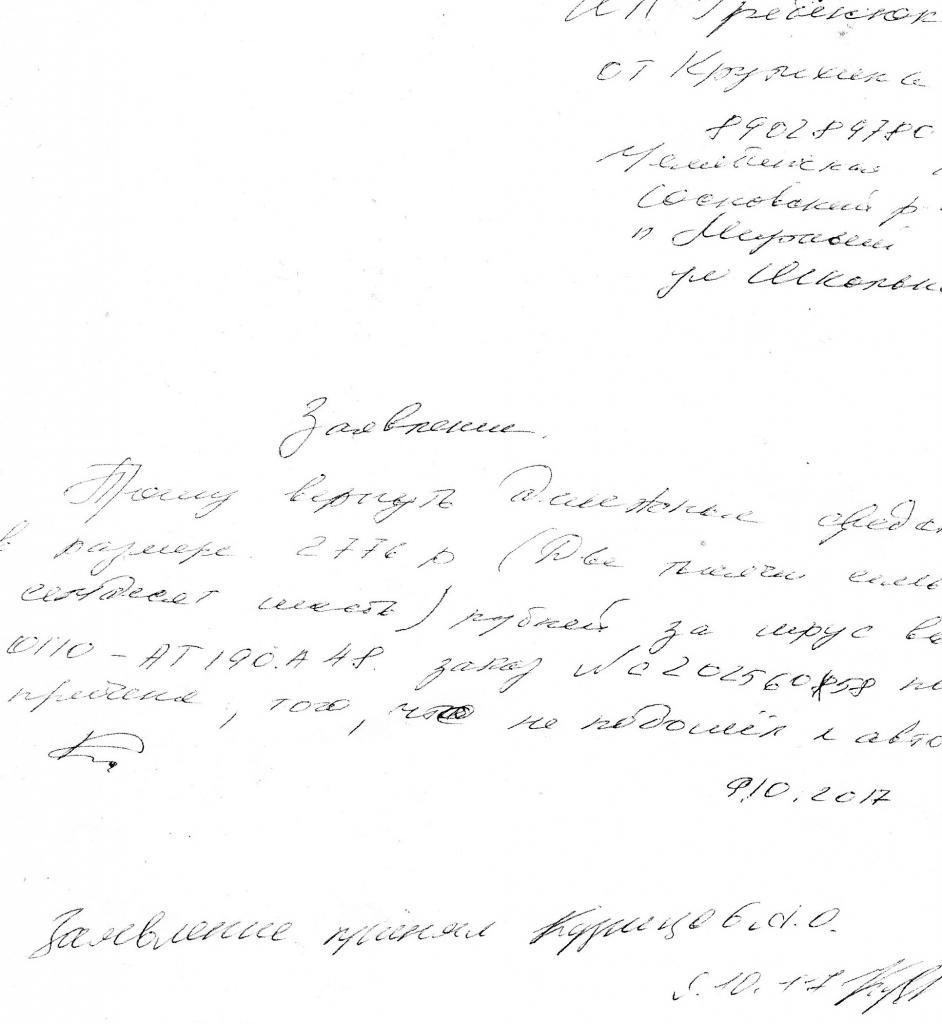 ИП Гребенюк
от Крупихина
890289780
Челябинская
Сосновский р-
п Мирный
ул Школьн
Заявление.
Прошу вернуть Денежные средс
в размере 2776 р (Две тысячи семь
семьдесят шесть) рублей за шрус
0110-AT190.A48. заказ №202560858 по
причене, того, что не подошёл к авто
10.2017
Заявление принял Курицо
10.17